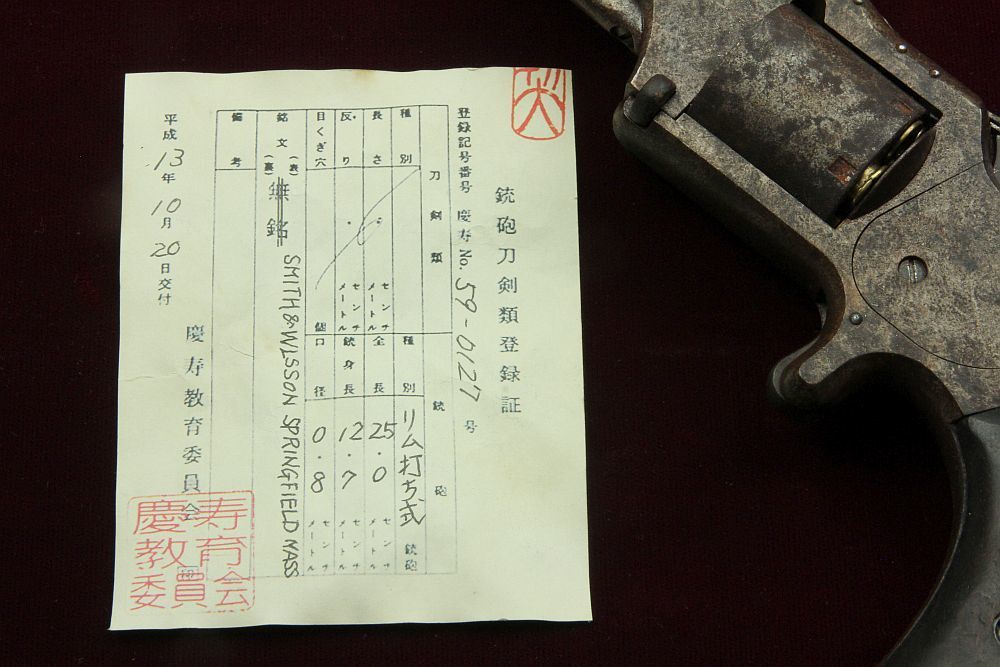 銃砲刀剣類登録証
登録記号番号 慶寿 No.59-0127 号
刀剣類
種別
長さ センチメートル
反り センチメートル
目くぎ穴 個
銃砲
種別 リム打ち式 銃砲
全長 25.0 センチメートル
銃身長 12.7 センチメートル
口径 0.8 センチメートル
銘文 (表) (裏) 無銘 SMITH & WLSSON SPRINGFIELD MASS
備考
平成13年10月20日交付
慶寿教育委員会
慶寿
教育
委員会